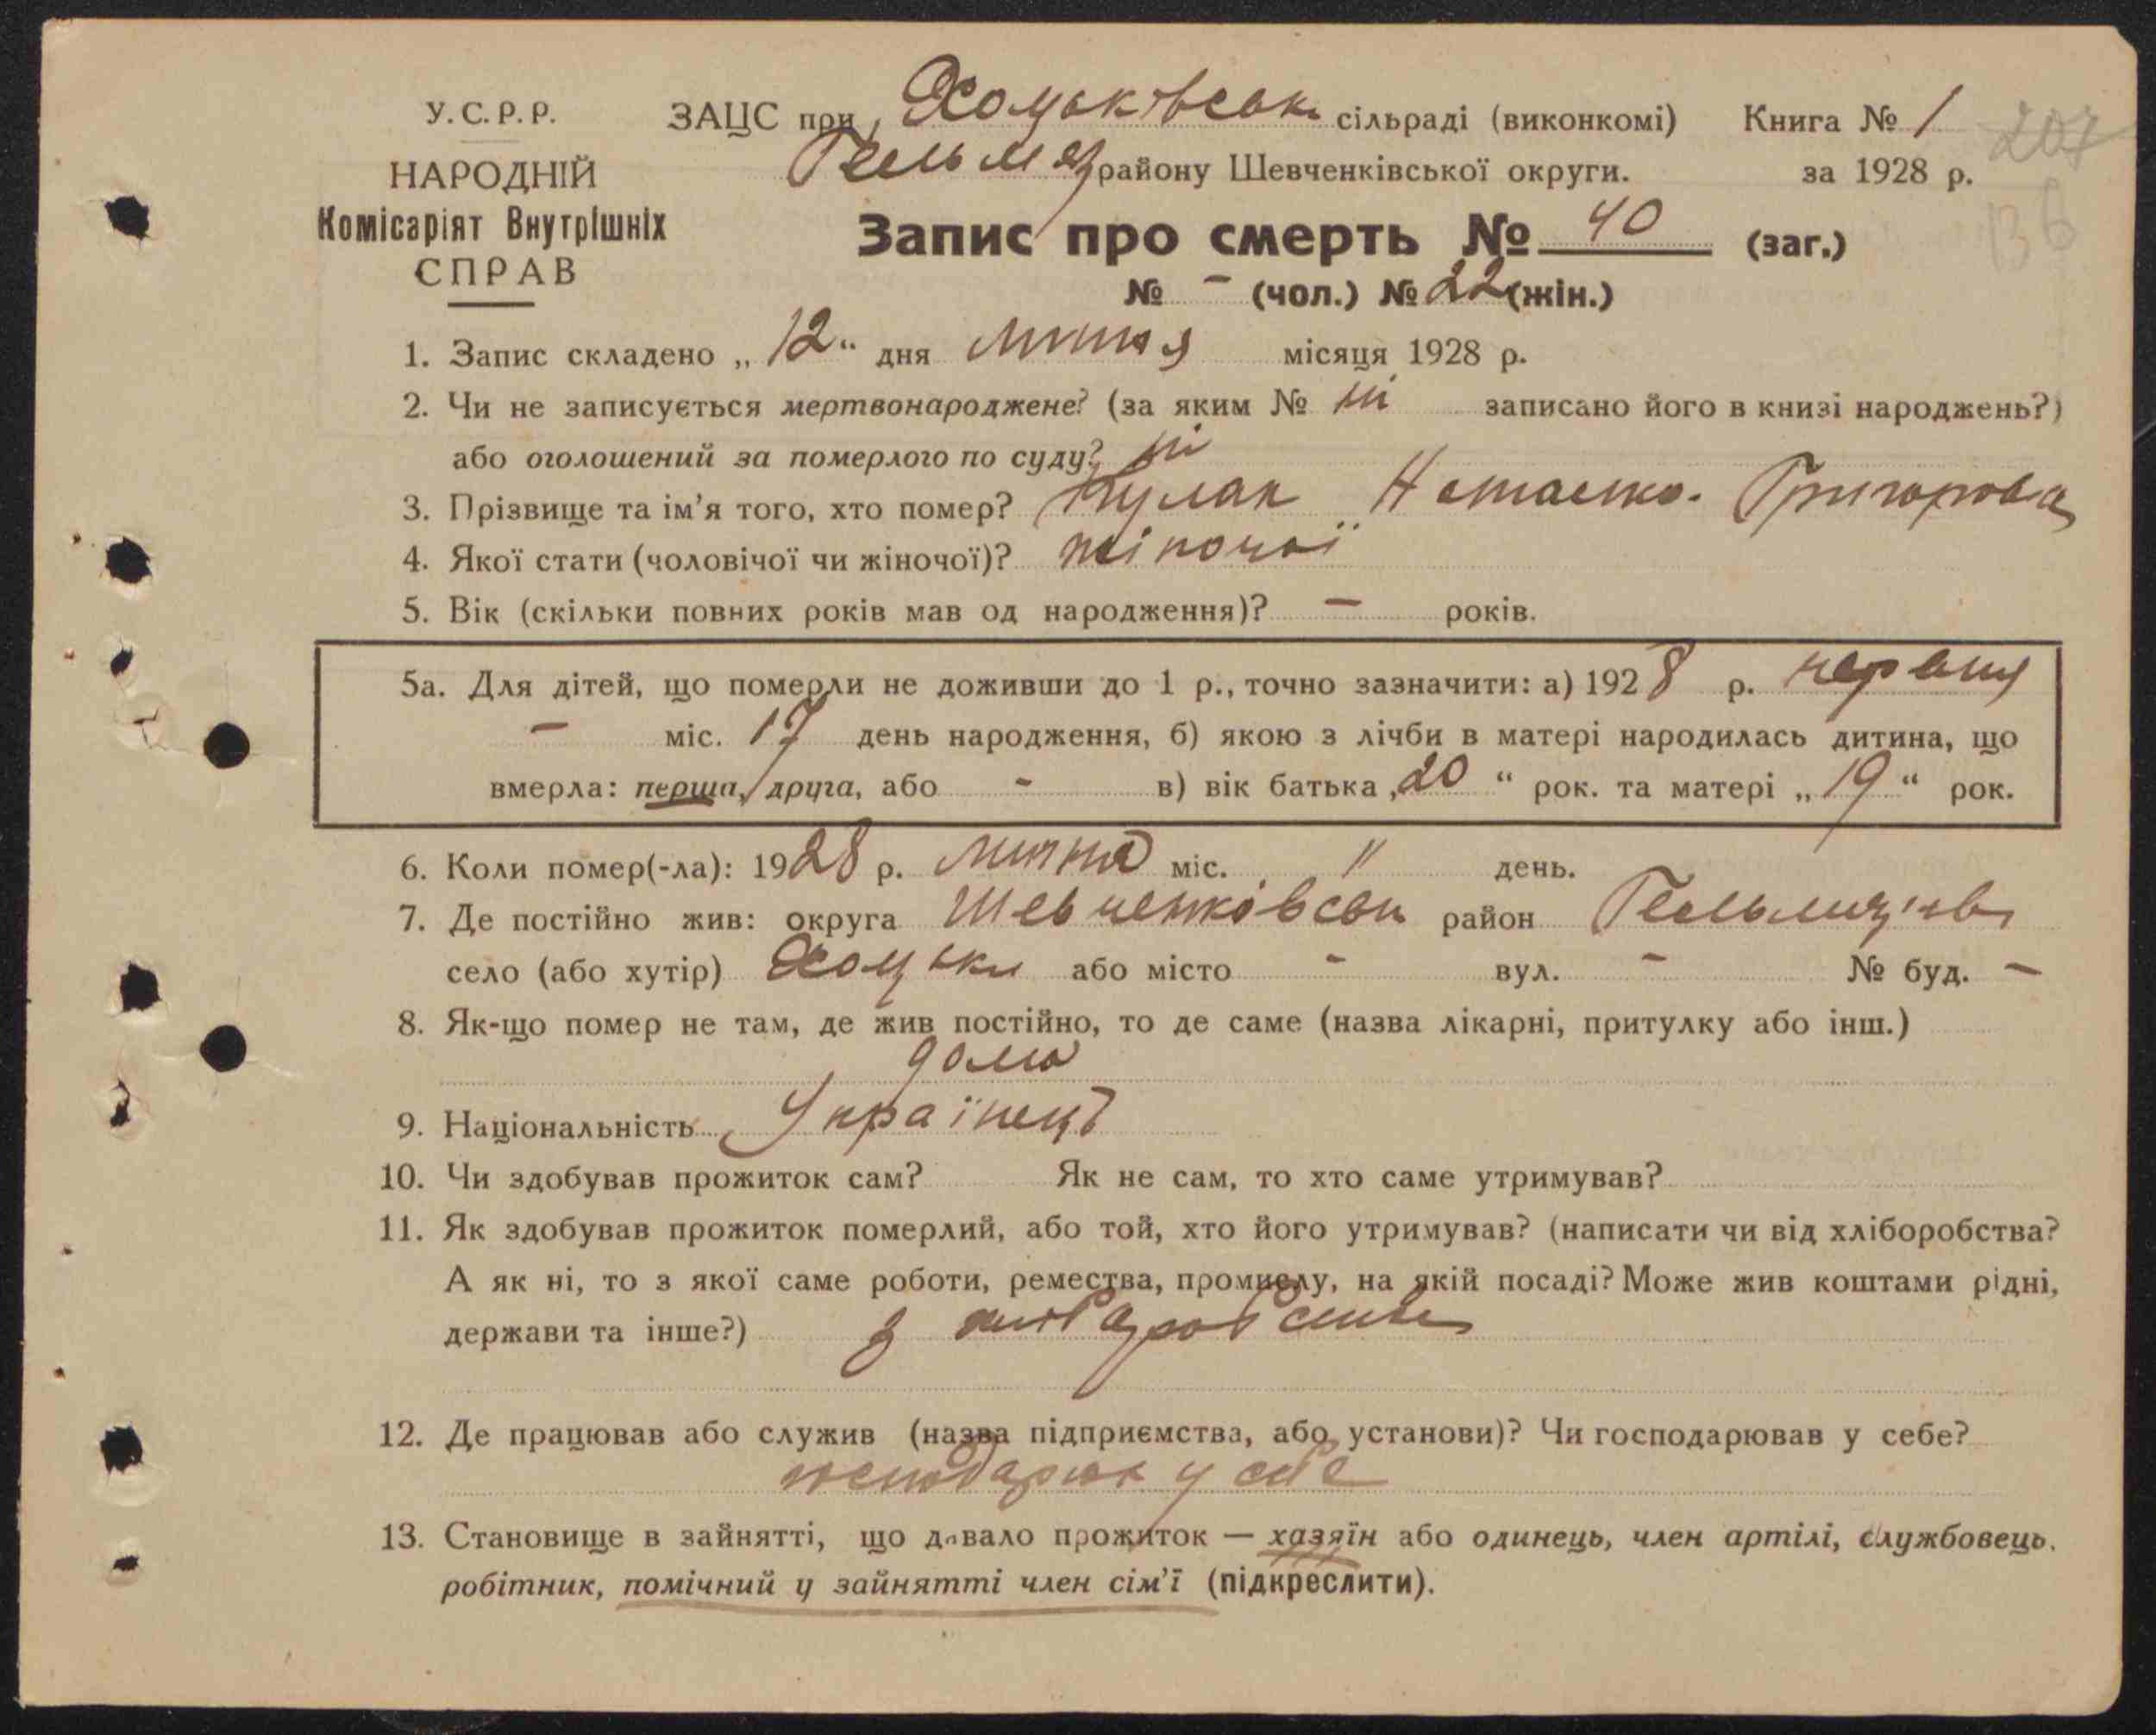 У.С.Р.Р. ЗАЦС при Хоцьківськ. сільраді (виконкомі) Книга № 1
207
НАРОДНІЙ Гельмяз району Шевченківської округи. за 1928 р.
Комісаріят Внутрішніх Запис про смерть № 40 (заг.)
136
СПРАВ № - (чол.) № 22 (жін.)
1. Запис складено „12“ дня липня місяця 1928 р.
2. Чи не записується мертвонароджене? (за яким № ні записано його в книзі народжень?)
або оголошений за померлого по суду? ні
3. Прізвище та ім'я того, хто помер? Кулак Наталка Григорова
4. Якої стати (чоловічої чи жіночої)? жіночої
5. Вік (скільки повних років мав од народження)? — років.
5а. Для дітей, що померли не доживши до 1 р., точно зазначити: а) 1928 р. червня
— міс. 17 день народження, б) якою з лічби в матері народилась дитина, що
вмерла: перша, друга, або - в) вік батька „20“ рок. та матері „19“ рок.
6. Коли помер(-ла): 1928 р. липня міс. 11 день.
7. Де постійно жив: округа Шевченківськ район Гельмязів
село (або хутір) Хоцьки або місто - вул. - № буд. —
8. Як-що помер не там, де жив постійно, то де саме (назва лікарні, притулку або інш.)
дома
9. Національність Українець
10. Чи здобував прожиток сам? Як не сам, то хто саме утримував?
11. Як здобував прожиток померлий, або той, хто його утримував? (написати чи від хліборобства?
А як ні, то з якої саме роботи, ремества, промислу, на якій посаді? Може жив коштами рідні,
держави та інше?) з хліборобства
12. Де працював або служив (назва підприємства, або установи)? Чи господарював у себе?
господарює у себе
13. Становище в зайнятті, що давало прожиток — хазяїн або одинець, член артілі, службовець,
робітник, помічний у зайнятті член сім'ї (підкреслити).